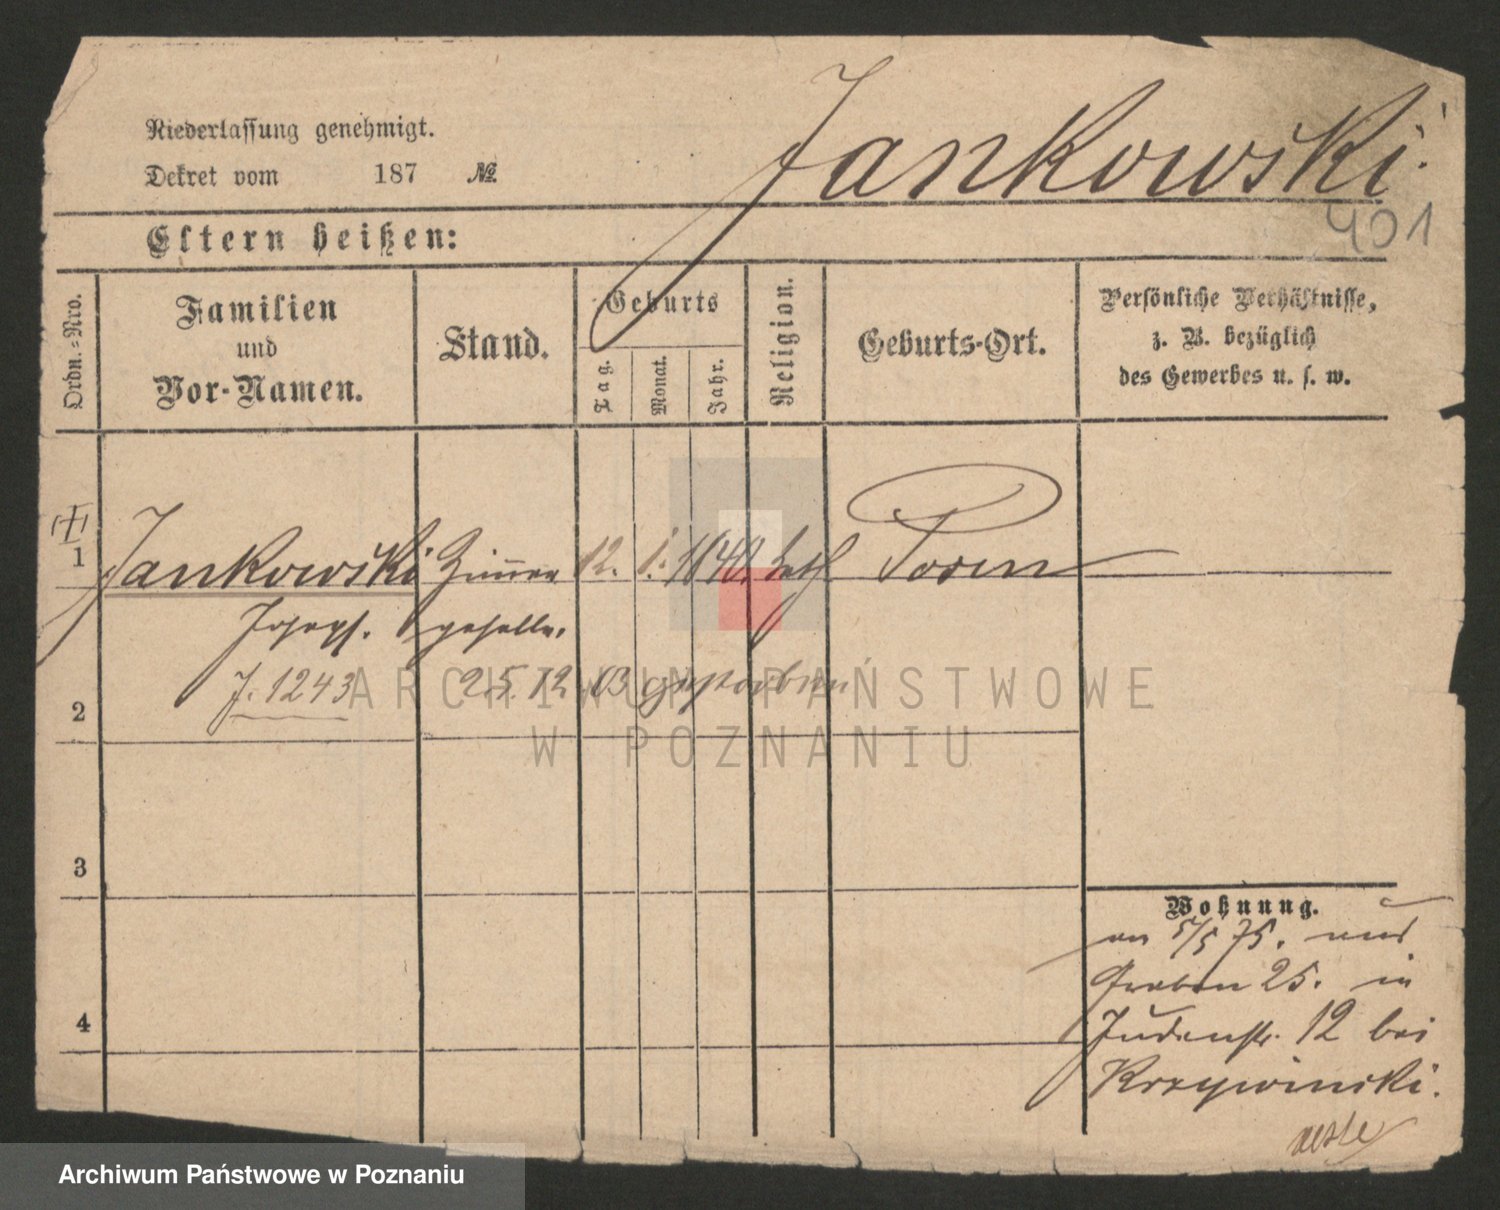 Niederlassung genehmigt.
Dekret vom 187 №
Jankowski.
401
Eltern heißen:
Ordn.-Nro.
Familien
und
Vor-Namen.
Stand.
Geburts
Tag.
Monat.
Jahr.
Religion.
Geburts-Ort.
Persönliche Verhältnisse,
z. B. bezüglich
des Gewerbes u. s. w.
1
Jankowski Zimmer 12. 1. 1840. kath Posen
Joseph. geselle.
J. 1243 25. 12. 03 gestorben
2
3
4
Wohnung.
am 5/5 75. aus
Graben 25. in
Judenstr. 12 bei
Krzywinski.
ARCHIWUM PAŃSTWOWE
W POZNANIU
Archiwum Państwowe w Poznaniu